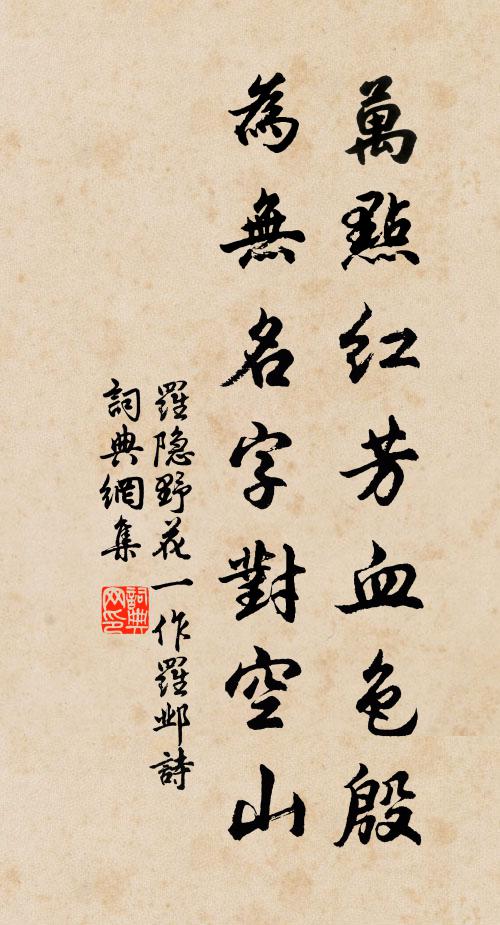 萬點紅芳血色殷
為無名字對空山
羅隐野花一作羅邺詩
詞典網集
詞典网印